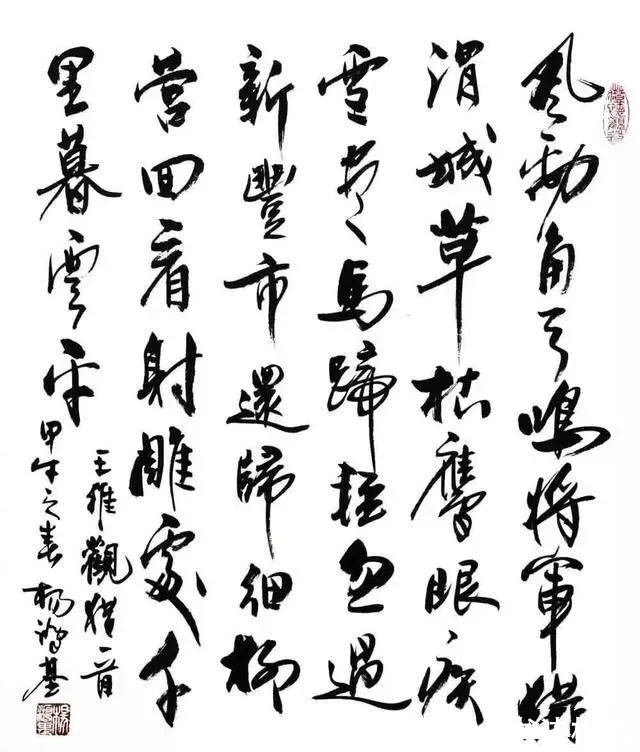 風勁角弓鳴將軍獵
渭城草枯鷹眼疾
雪盡馬蹄輕忽過
新豐市還歸細柳
營回看射雕處千
里暮雲平
王維觀獵一首
甲午之春楊鴻基